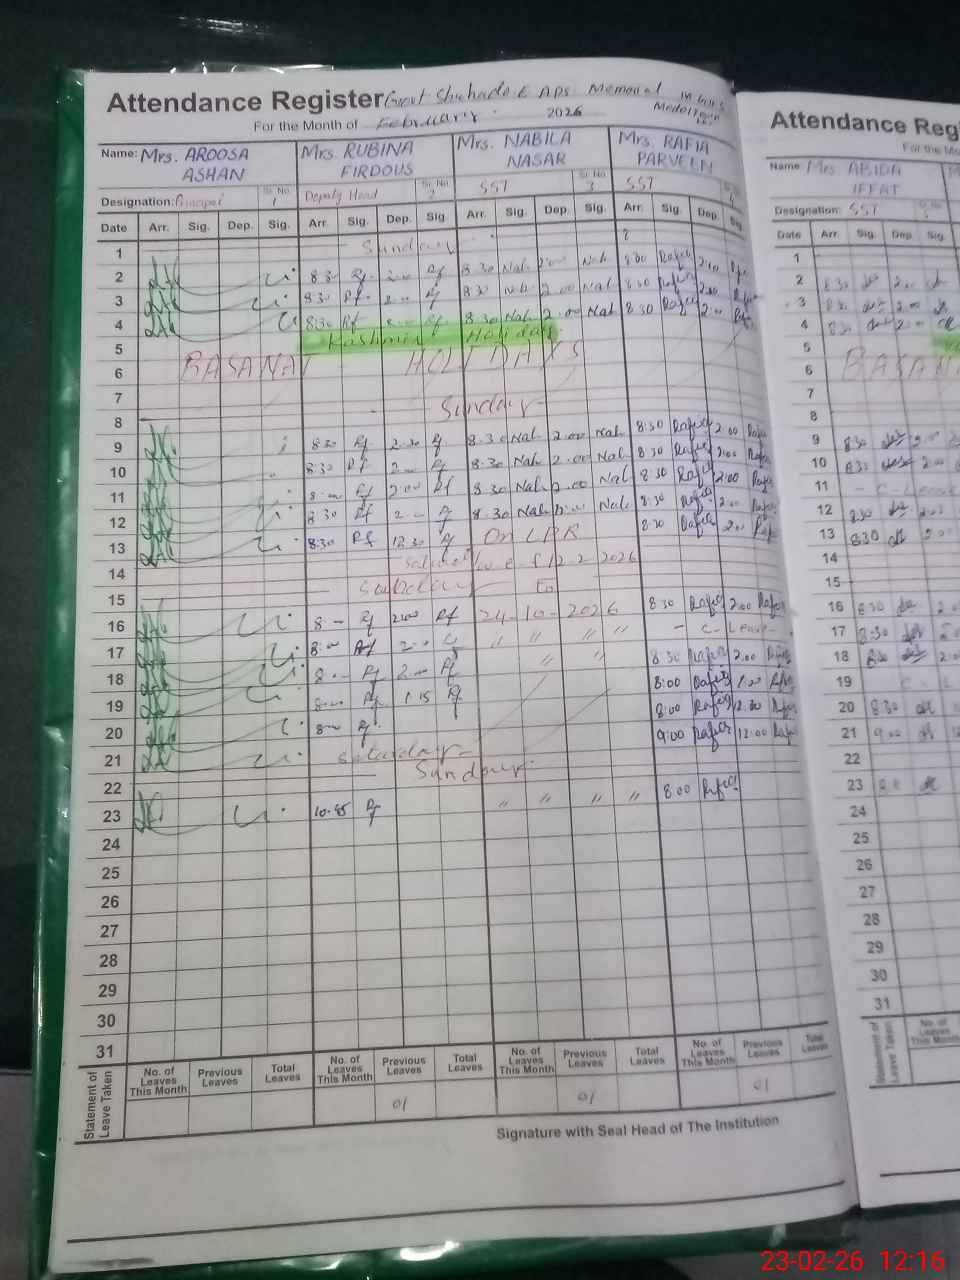 Attendance Register Govt. Shuhada E APS Memorial
For the Month of February. 2026
Name: Mrs. AROOSA ASHAN Mrs. RUBINA FIRDOUS Mrs. NABILA NASAR Mrs. RAFIA PARVEEN
Designation: Principal Sr. No 1 Deputy Head Sr. No 2 SST Sr. No 3 SST
Date Arr. Sig. Dep. Sig. Arr. Sig. Dep. Sig. Arr. Sig. Dep. Sig. Arr. Sig. Dep. Sig.
1 Sunday
2 8:30 Rf 2:00 Rf 8.30 Nab 2:00 Nab 8:00 Rafia 2:00
3 8:30 Rf 2:00 Rf 8:30 Nab 2.00 Nab 8:00 Rafia 2:00
4 8:30 Rf 2:00 Rf 8.30 Nab 2.00 Nab 8:30 Rafia 2:00
5 Kashmir Holiday
6 BASANAT HOLIDAYS
7
8 Sunday
9 8:30 Rf 2:00 Rf 8.30 Nab 2.00 Nab 8:30 Rafia 2:00 Rafia
10 8:30 Rf 2:00 Rf 8.30 Nab 2.00 Nab 8:30 Rafia 2:00 Rafia
11 8:00 Rf 2:00 Rf 8.30 Nab 2.00 Nab 8:30 Rafia 2:00 Rafia
12 8:30 Rf 2:00 Rf 8.30 Nab 2:00 Nab 8:30 Rafia 2:00 Rafia
13 8:30 Rf 12:30 Rf On LPR 8:30 Rafia 2:00 Rafia
14 w.e.f 12 2 2026
15 Sunday to
16 8:00 Rf 2:00 Rf 24-10-2026 8:30 Rafia 2:00 Rafia
17 8:00 Rf 2:00 〃 〃 〃 〃 - C-Leave-
18 8:00 Rf 2:00 Rf 〃 〃 8:30 Rafia 2:00 Rafia
19 8:00 Rf 1:15 Rf 8:00 Rafia 1:00 Rafia
20 8:00 Rf 8:00 Rafia 12:30 Rafia
21 Saturday 9:00 Rafia 12:00 Rafia
22 Sunday
23 10:45 Rf 〃 〃 〃 〃 8:00 Rafia
24
25
26
27
28
29
30
31
Statement of Leave Taken
No. of Leaves This Month Previous Leaves Total Leaves No. of Leaves This Month Previous Leaves Total Leaves No. of Leaves This Month Previous Leaves Total Leaves No. of Leaves This Month Previous Leaves Total Leaves
01 01 01
Signature with Seal Head of The Institution
Attendance Reg
For the Mo
Name: Mrs. ABIDA IFFAT
Designation: SST
Date Arr. Sig. Dep. Sig.
1
2 8:30 2:00
3 8:30 2:00
4 8:30 2:00
5
6 BASAN
7
8
9 8:30 2:00
10 8:30 2:00
11 - C-Leave
12 8:30 2:00
13 8:30 2:00
14
15
16 8:30
17 8:30
18 8:30
19
20 8:30
21 9:00
22
23
24
25
26
27
28
29
30
31
Statement of Leave Taken
No. of Leaves This Month
23-02-26 12:16